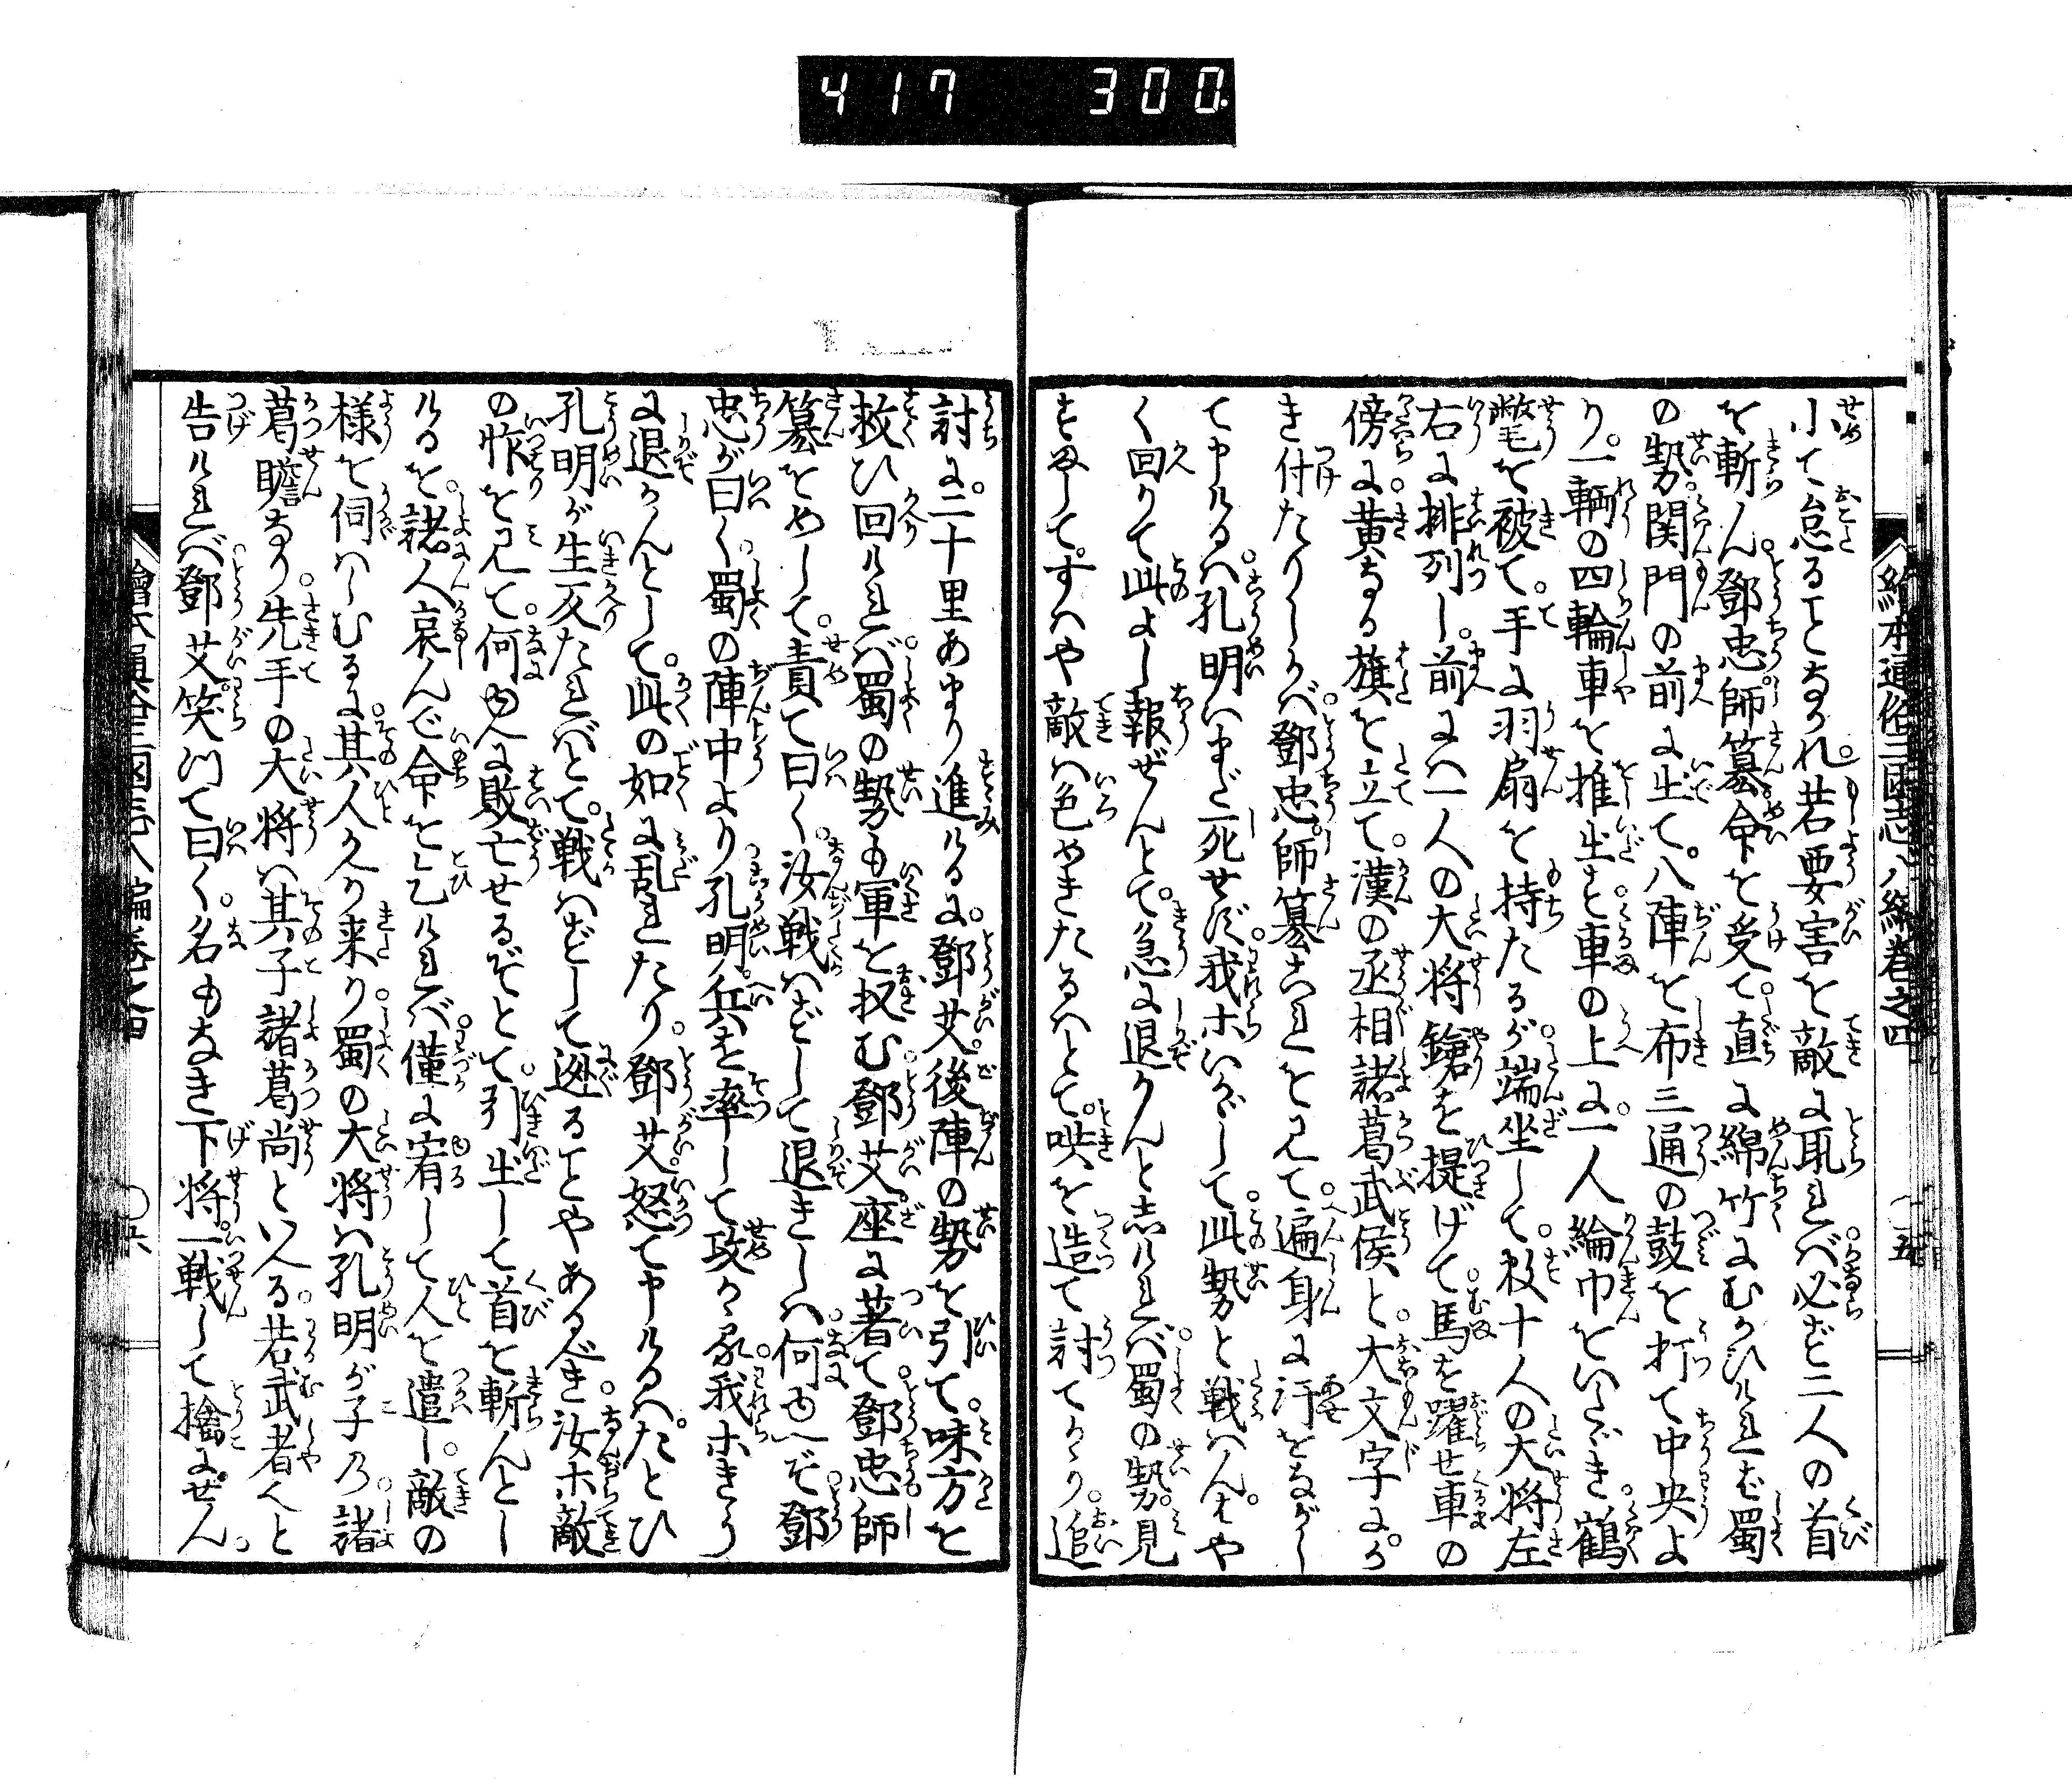 417 300.
絵本通俗三国志八編巻之四 ○五
小て怠ることなかれ。若要害を敵に取れバ必ず二人の首
を斬ん。鄧忠。師纂命を受て。直に綿竹にむかひけれバ蜀
の勢。関門の前に出て。八陣を布三通の鼓を打て中央よ
り。一輌の四輪車を推出す。車の上に。一人綸巾をいたゞき。鶴
氅を被て。手に羽扇を持たるが。端坐して。数十人の大将左
右に排列し。前にハ一人の大将鎗を提げて。馬を躍せ車の
傍に。黄なる旗を立て。漢の丞相諸葛武侯と。大文字に。か
き付たりしかバ。鄧忠。師纂これを見て。遍身に汗をながし
て申けるハ。孔明いまだ死せず。我ホいかゞして。此勢と戦ハん。はや
く回りて此よし報ぜんとて。急に退かんと志けれバ。蜀の勢。見
すまして。すハや敵ハ色めきたるハとて。哄を造て討てかゝり。追
討に。二十里あまり進けるに。鄧艾。後陣の勢を引て。味方を
救ひ回けれバ。蜀の勢も軍を収む。鄧艾。座に著て。鄧忠。師
纂をめして。責て曰く。汝戦ハずして退きしハ。何ゆへぞ。鄧
忠が曰く。蜀の陣中より孔明。兵を率して攻かゝる。我ホきう
に退かんとして。此の如に乱れたり。鄧艾。怒て申けるハ。たとひ
孔明が生反たれバとて。戦ハずして迯ることやあるべき。汝ホ敵
の怍を見て。何ゆへに敗亡せるぞとて。引出して首を斬んとし
けるを。諸人哀んで命を乞けれバ。僅に宥して人を遣し。敵の
様を伺ハしむるに。其人かへり来り。蜀の大将ハ孔明が子乃。諸
葛瞻なり。先手の大将ハ其子諸葛尚といへる。若武者ヘと
告けれバ。鄧艾。笑つて曰く。名もなき下将。一戦して擒にぜん。
○六